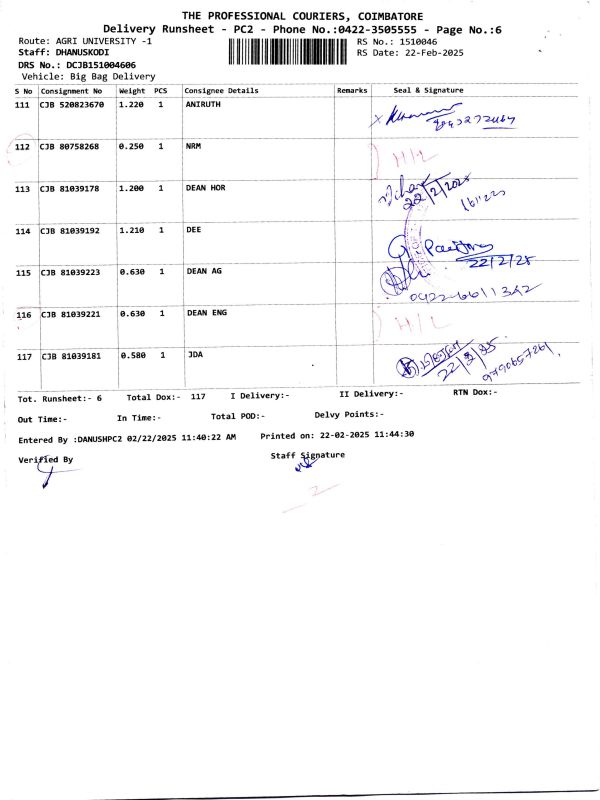 THE PROFESSIONAL COURIERS, COIMBATORE
Delivery Runsheet - PC2 - Phone No.:0422-3505555 - Page No.:6
Route: AGRI UNIVERSITY -1
RS No.: 1510046
Staff: DHANUSKODI
RS Date: 22-Feb-2025
DRS No.: DCJB151004606
Vehicle: Big Bag Delivery
S No Consignment No Weight PCS Consignee Details Remarks Seal & Signature
111 CJB 520823670 1.220 1 ANIRUTH
112 CJB 80758268 0.250 1 NRM H/L
113 CJB 81039178 1.200 1 DEAN HOR
22/2/2025
114 CJB 81039192 1.210 1 DEE
22/2/25
115 CJB 81039223 0.630 1 DEAN AG
0422-6611342
116 CJB 81039221 0.630 1 DEAN ENG H/L
117 CJB 81039181 0.580 1 JDA
9790657261
Tot. Runsheet:- 6 Total Dox:- 117 I Delivery:- II Delivery:- RTN Dox:-
Out Time:- In Time:- Total POD:- Delvy Points:-
Entered By :DANUSHPC2 02/22/2025 11:40:22 AM Printed on: 22-02-2025 11:44:30
Verified By Staff Signature
2